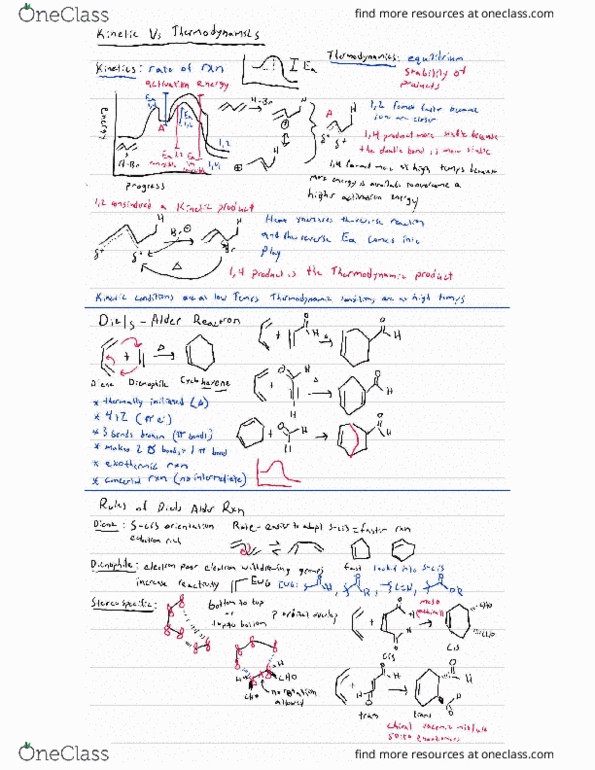 OneClass
find more resources at oneclass.com
Kinetic Vs Thermodynamics
Thermodynamics: equilibrium
Stability of
products
Kinetics: rate of rxn
activation energy
Ea
Energy
H-Br
H
1,2
1,4
H-Br
progress
1,2 forms faster because
ions are closer
1,4 product more stable because
the double bond is more stable
1,4 formed more at high temps because
more energy is available to overcome a
higher activation energy
1,2 considered a Kinetic product
Heat increases the reverse reaction
and the reverse Ea comes into
play
1,4 product is the Thermodynamic product
Kinetic conditions are at low Temps Thermodynamic conditions are at high temps
Diels-Alder Reaction
Diene Dienophile Cyclohexene
* thermally initiated (Δ)
* 4+2 (π e⁻)
* 3 bonds broken (π bonds)
* Makes 2 σ bonds + 1 π bond
* exothermic rxn
* concerted rxn (no intermediate)
Rules of Diels Alder Rxn
Diene: S-cis orientation
electron rich
Rate - easier to adopt S-cis = faster rxn
fast locked into S-cis
Dienophile: electron poor electron withdrawing groups
increase reactivity
EWG
EWG:
Stereospecific:
bottom to top
or
top to bottom
P orbital overlap
meso
(achiral)
CHO
CHO
cis
cis
H
CHO
no rotation
allowed
trans
trans
chiral racemic mixture
50:50 enantiomers
OneClass
find more resources at oneclass.com